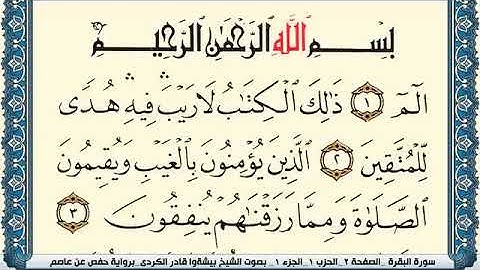 بِسْمِ ٱللَّهِ ٱلرَّحْمَٰنِ ٱلرَّحِيمِ
الٓمٓ ١ ذَٰلِكَ ٱلْكِتَٰبُ لَا رَيْبَ ۛ فِيهِ ۛ هُدًى
لِّلْمُتَّقِينَ ٢ ٱلَّذِينَ يُؤْمِنُونَ بِٱلْغَيْبِ وَيُقِيمُونَ
ٱلصَّلَوٰةَ وَمِمَّا رَزَقْنَٰهُمْ يُنفِقُونَ ٣
سورة البقرة _ الصفحة ٢_ الحزب ١_ الجزء ١_ بصوت الشيخ بيشةوا قادر الكردى_ برواية حفص عن عاصم